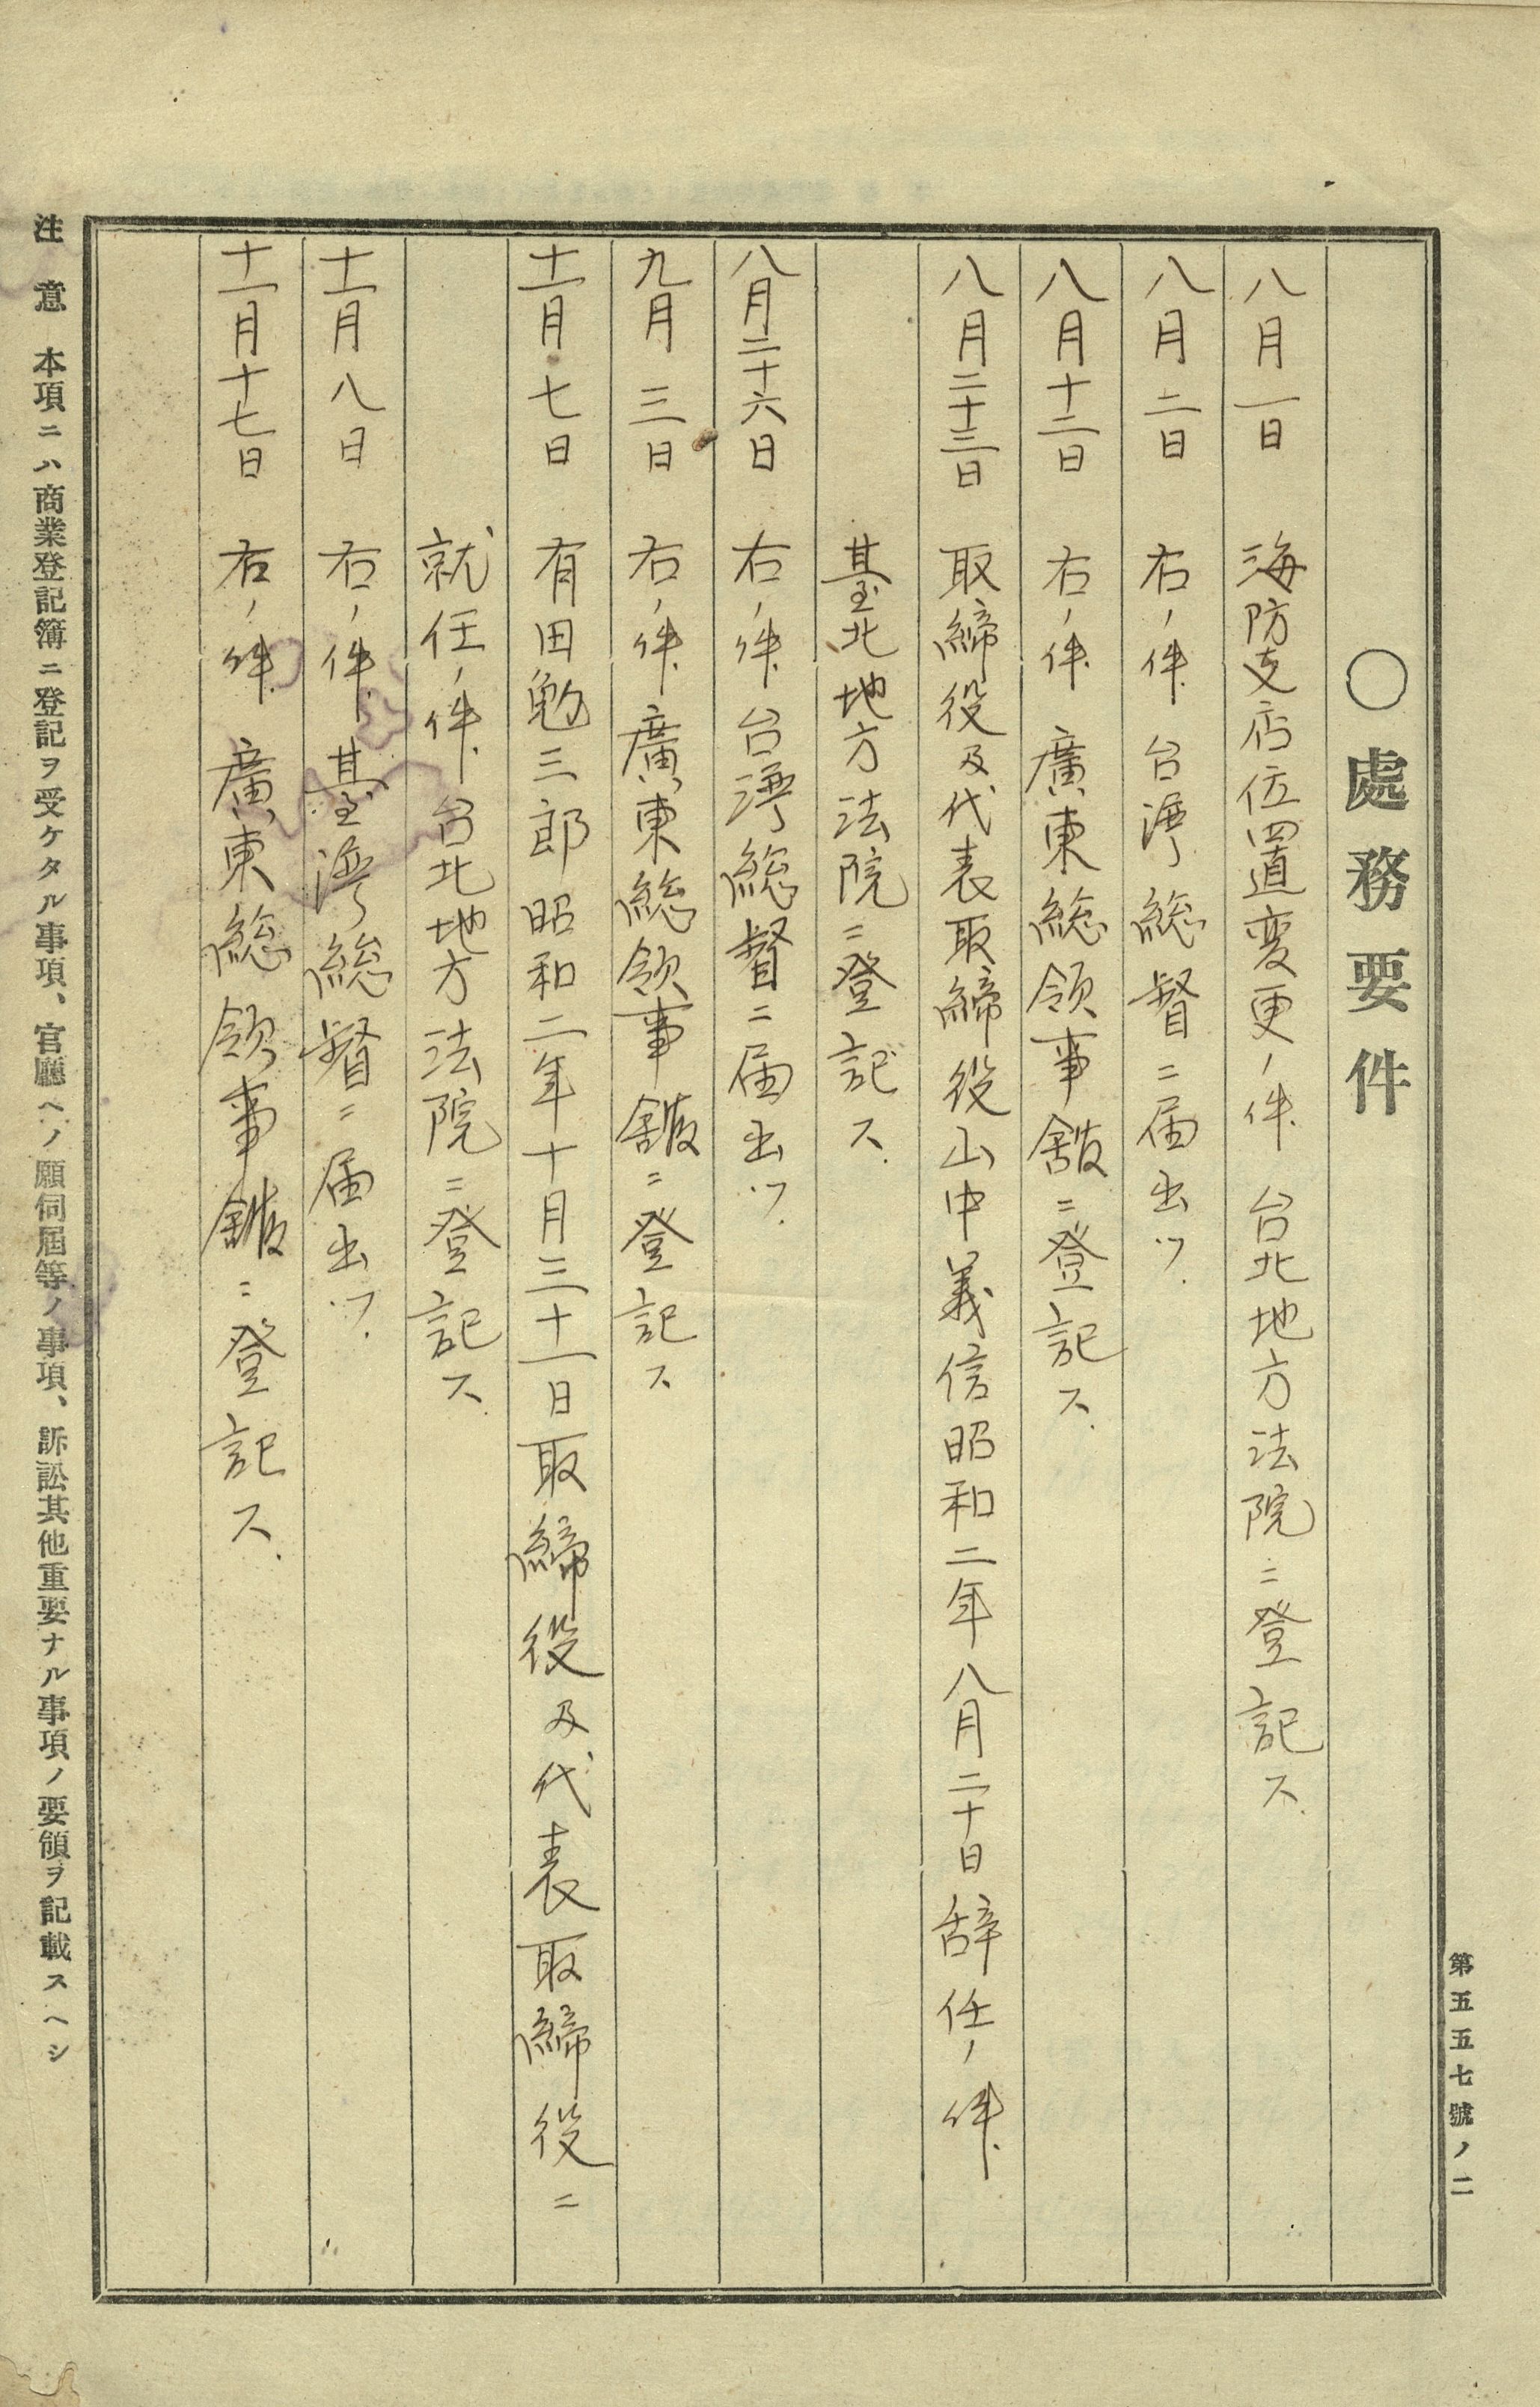 第五五七號ノ二
〇處務要件
八月一日 海防支店位置変更ノ件 台北地方法院ニ登記ス.
八月二日 右ノ件 台湾総督ニ届出ヅ.
八月十二日 右ノ件 廣東総領事舘ニ登記ス.
八月二十三日 取締役及代表取締役山中義信昭和二年八月二十日辞任ノ件
臺北地方法院ニ登記ス.
八月二十六日 右ノ件 台湾総督ニ届出ヅ.
九月三日 右ノ件 廣東総領事舘ニ登記ス
十一月七日 有田勉三郎昭和二年十月三十一日取締役及代表取締役ニ
就任ノ件 台北地方法院ニ登記ス.
十一月八日 右ノ件 臺湾総督ニ届出ヅ.
十一月十七日 右ノ件 廣東総領事舘ニ登記ス.
注意 本項ニハ商業登記簿ニ登記ヲ受ケタル事項、官廳ヘノ願伺屆等ノ事項、訴訟其他重要ナル事項ノ要領ヲ記載スヘシ